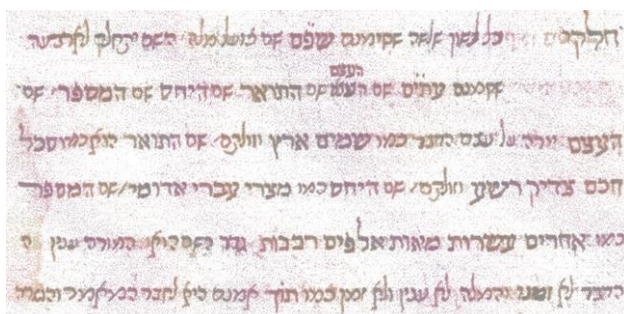 חלקי כל לשון שלשה שסימנם שפ״ם שם פועל מלה השם יחלק לארבעה
העצם
שסמנם עתי״ם שם שם התואר שם היחס שם המספר שם
העצם יורה על עצם הדבר כמו שמים ארץ וזולתם שם התואר הוא כמו סכל
חכם צדיק רשע וזולתם שם היחס כמו מצרי עברי אדומי שם המספר
כמו אחדים עשרות מאות אלפים רבבות גדר השם הוא המורה ענין
הדבר לא זמנו והמלה לא ענין ולא זמן כמו תוך אמנם היא לחבר המאמר